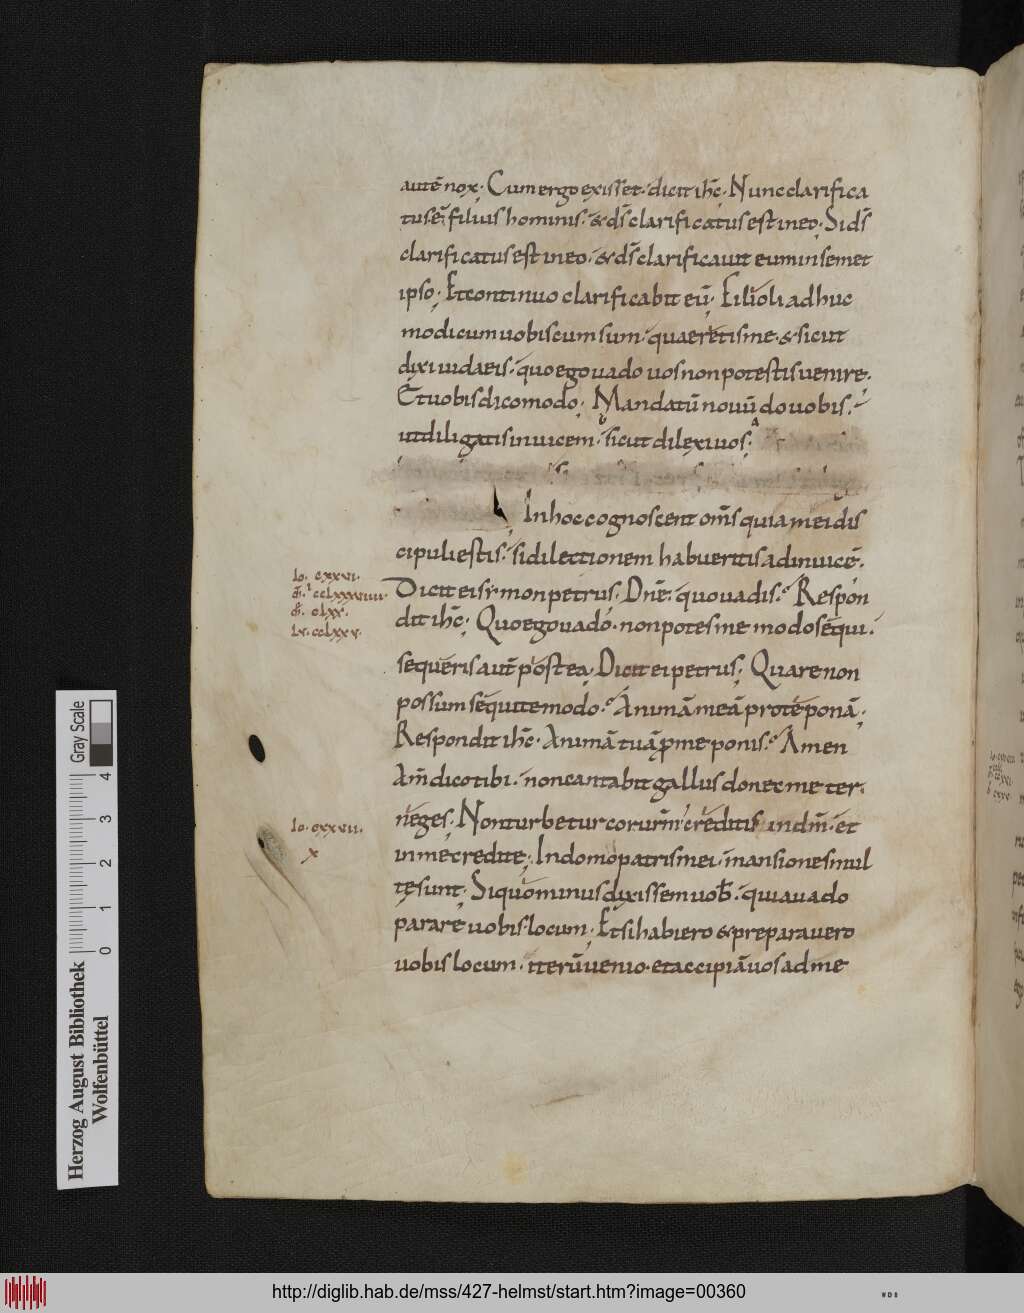 autē nox. Cum ergo exisset. dicit ih̄c. Nunc clarifica
tus ē filius hominis. & d̄s clarificatus est in eo. Si d̄s
clarificatus est in eo. & d̄s clarificauit eum in semet
ipso. Et continuo clarificabit eū. Filioli adhuc
modicum uobiscum sum. quaeretis me. & sicut
dixi iudaeis. quo ego uado uos non potestis uenire.
Et uobis dico modo. Mandatū nouū do uobis.
ut diligatis inuicem. sicut dilexi uos.
In hoc cognoscent om̄s quia mei dis
cipuli estis. si dilectionem habueritis ad inuicē.
Io. cxxvi.
Dicit ei simon petrus. Dn̄e. quo uadis. Respon
dit ih̄c. Quo ego uado. non potes me modo sequi.
Lv. cclxxv.
sequeris autē postea. Dicit ei petrus. Quare non
possum sequi te modo. Animā meā pro te ponā.
Respondit ih̄c. Animā tuā p me ponis. Amen
Am̄ dico tibi. non cantabit gallus donec me ter
neges. Non turbetur cor ur̄m creditis in dm̄. et
Io. cxxvii.
x
in me credite. In domo patris mei. mansiones mul
tę sunt. Si quominus dixissem uob̄. quia uado
parare uobis locum. Et si habiero & preparauero
uobis locum. iterū uenio. et accipiā uos ad me
Gray Scale
4 3 2 1 0
Herzog August Bibliothek
Wolfenbüttel
http://diglib.hab.de/mss/427-helmst/start.htm?image=00360